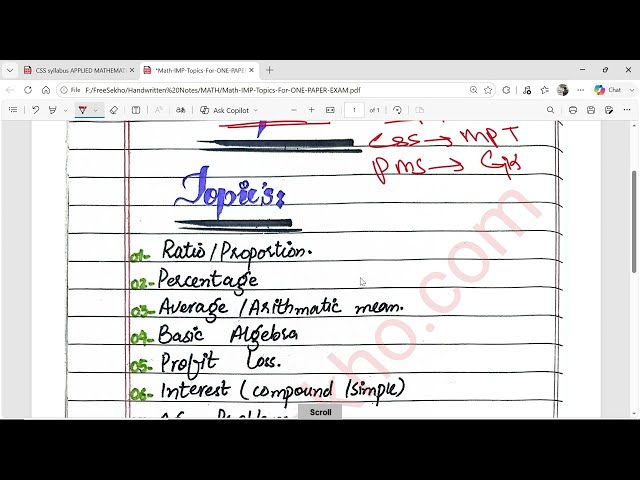 CSS syllabus APPLIED MATHEMAT
*Math-IMP-Topics-For-ONE-PAPER
F:/FreeSekho/Handwritten%20Notes/MATH/Math-IMP-Topics-For-ONE-PAPER-EXAM.pdf
Copilot
Ask Copilot
1 of 1
CSS → MPT
PMS → GK
Topics:
01- Ratio/Proportion.
02- Percentage
03- Average /Arithmatic mean.
04- Basic Algebra
05- Profit Loss.
06- Interest (compound /simple)
Scroll
kho.com